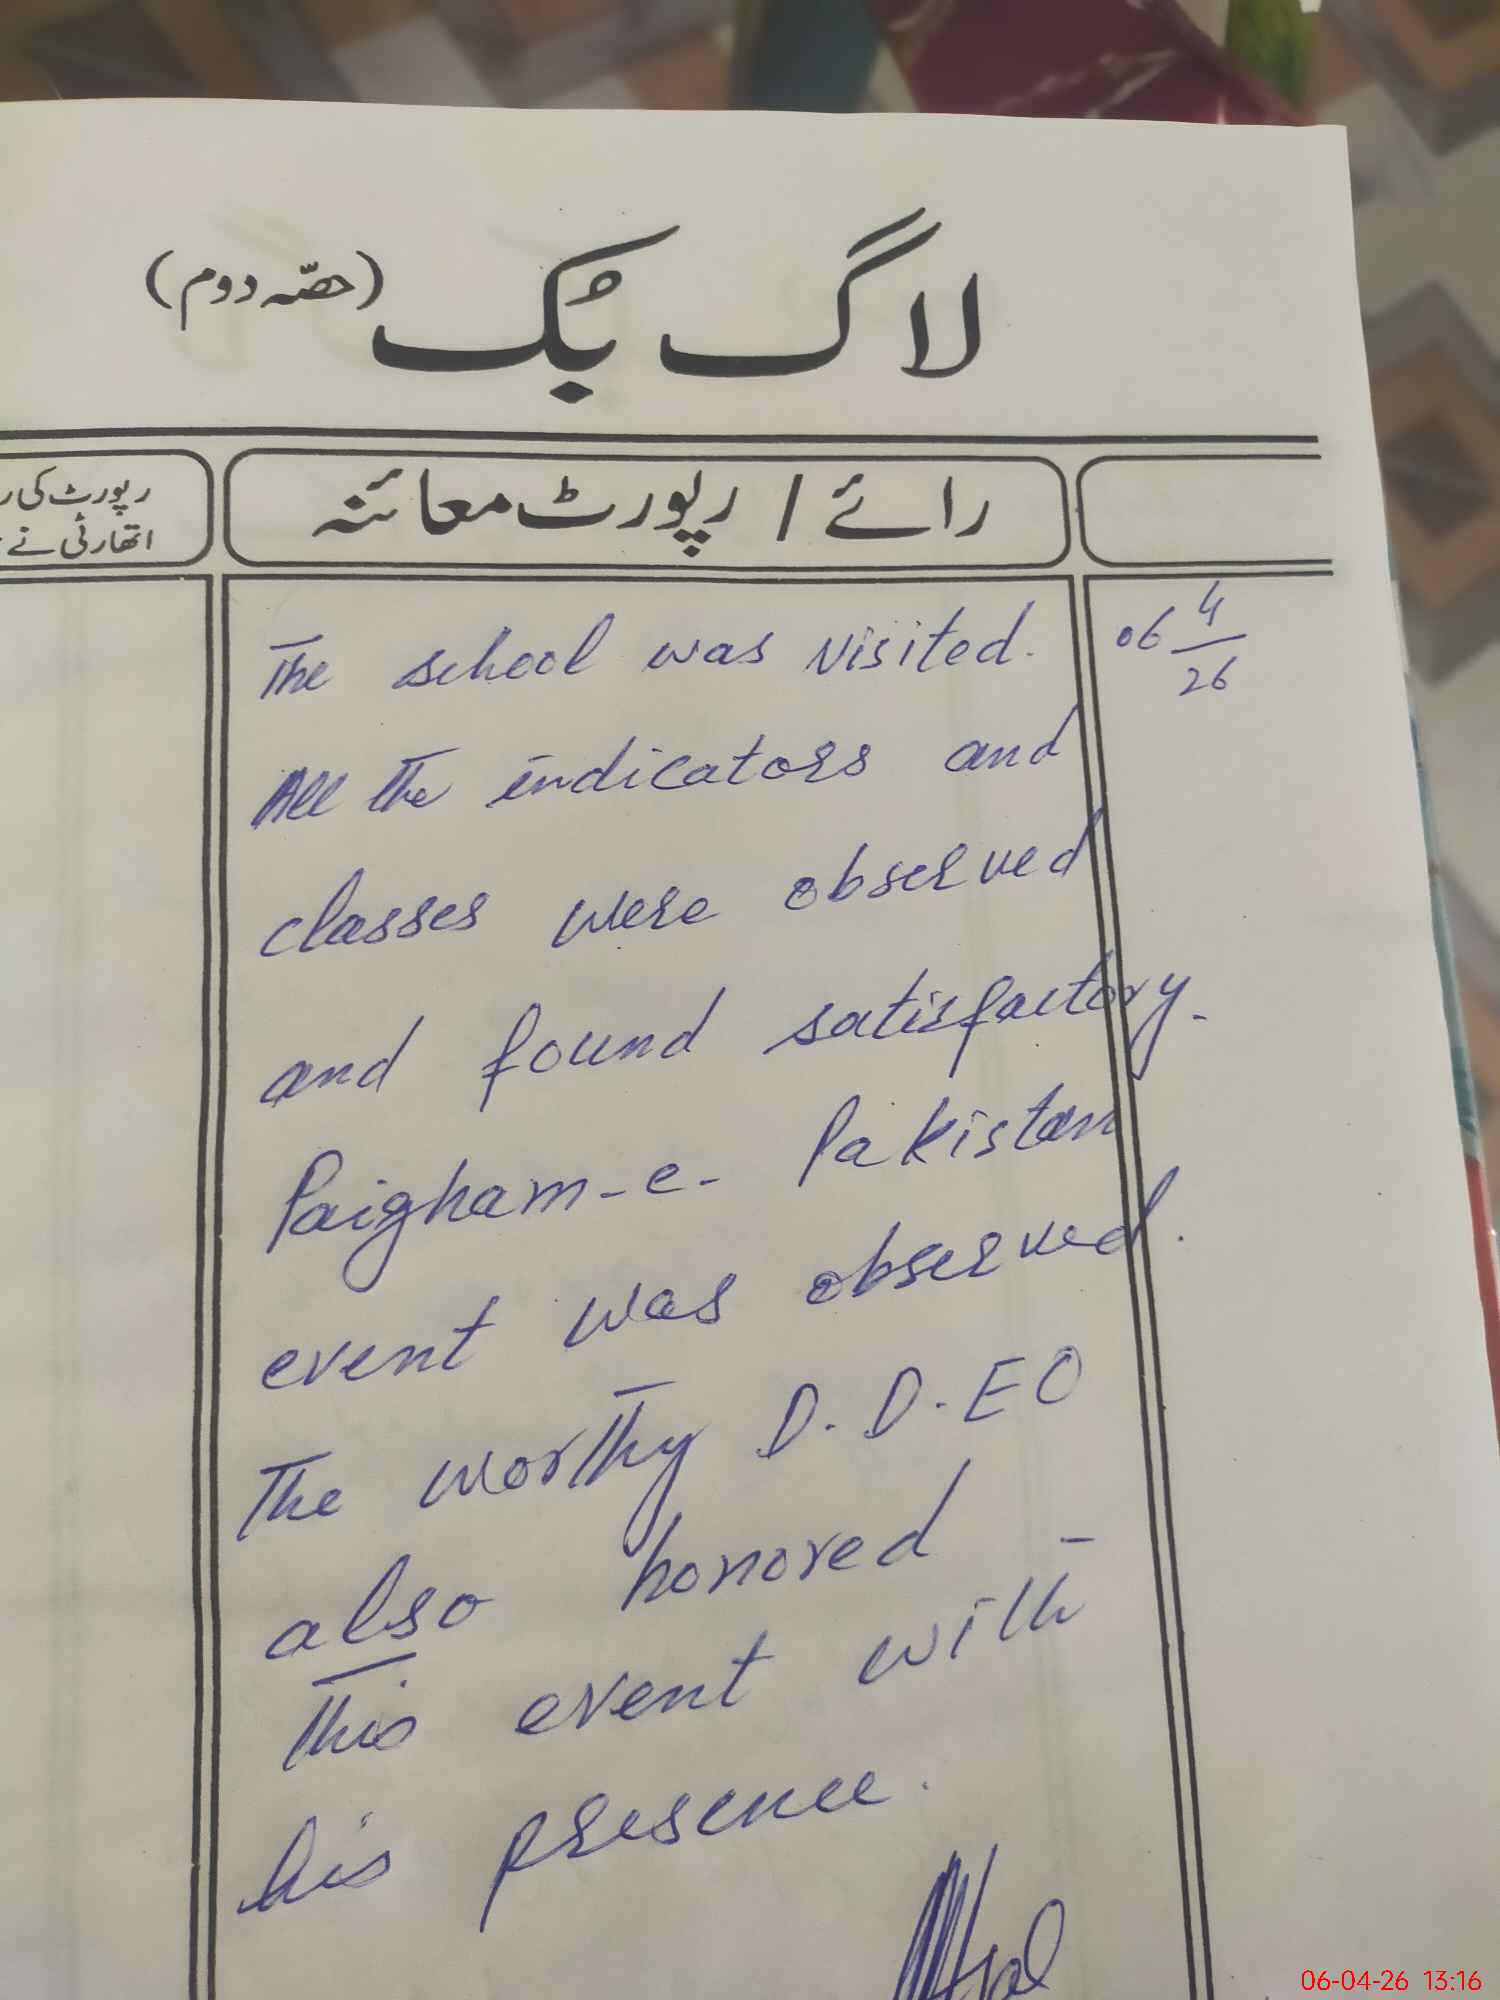 لاگ بُک (حصّہ دوم)
رائے / رپورٹ معائنہ
رپورٹ کی
اتھارٹی نے
06 4/26
The school was visited.
All the indicators and
classes were observed
and found satisfactory.
Paigham-e-Pakistan
event was observed.
The worthy D.D.EO
also honored -
this event with
his presence.
06-04-26 13:16